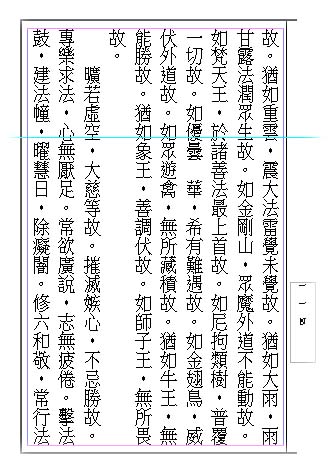 故。猶如重雲·震大法雷覺未覺故。猶如大雨·雨
甘露法潤眾生故。如金剛山·眾魔外道不能動故。
如梵天王·於諸善法最上首故。如尼拘類樹·普覆
一切故。如優曇　華·希有難遇故。如金翅鳥·威
伏外道故。如眾遊禽·無所藏積故。猶如牛王·無
能勝故。猶如象王·善調伏故。如師子王·無所畏
故。
曠若虛空·大慈等故。摧滅嫉心·不忌勝故。
專樂求法·心無厭足。常欲廣說·志無疲倦。擊法
鼓·建法幢·曜慧日·除癡闇。修六和敬·常行法